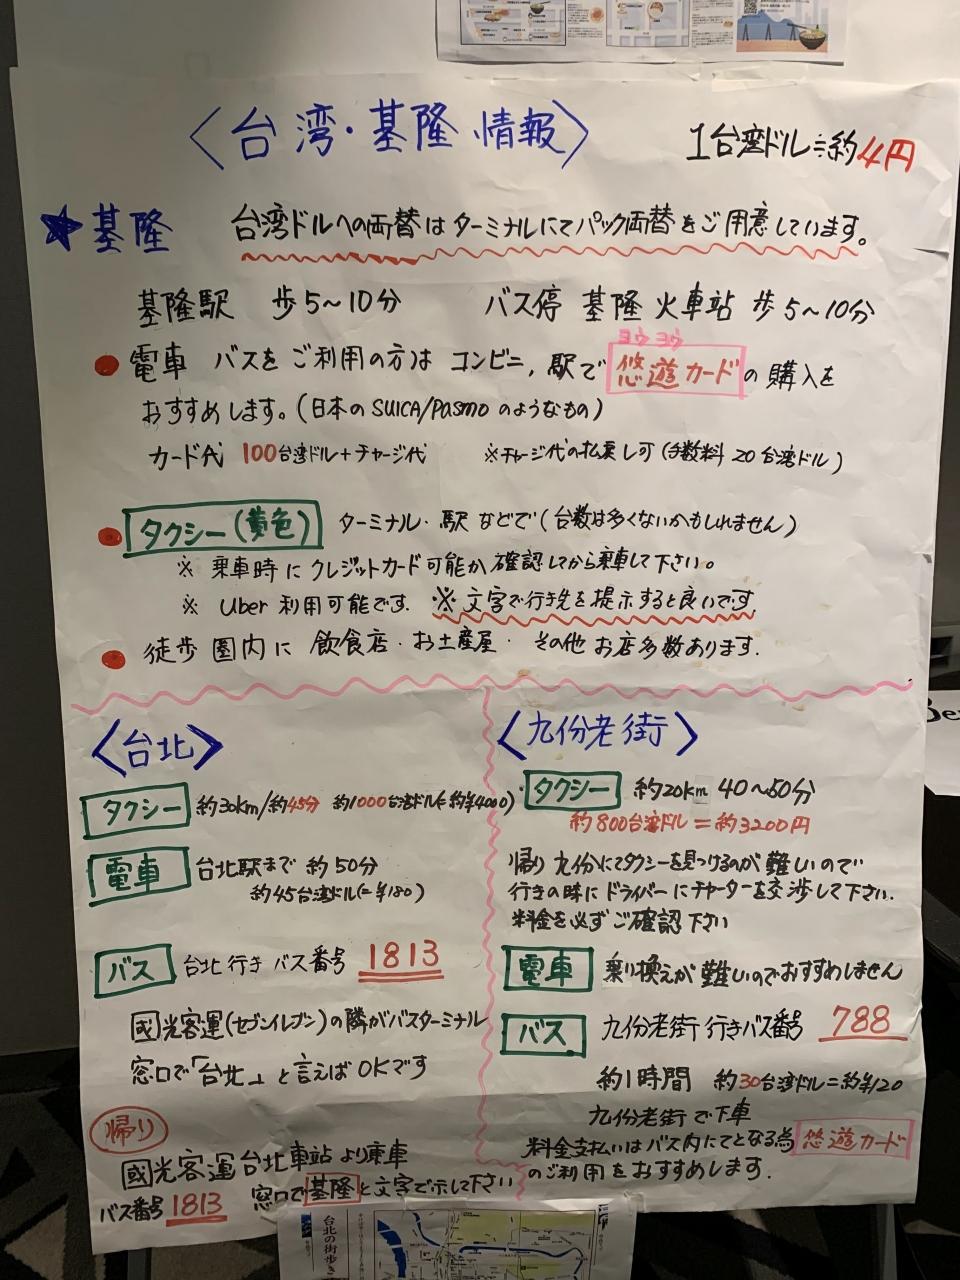 〈台湾・基隆情報〉
1台湾ドル≒約4円
★基隆 台湾ドルへの両替はターミナルにてパック両替をご用意しています。
基隆駅 歩5~10分 バス停 基隆火車站 歩5~10分
ヨウヨウ
●電車 バスをご利用の方は コンビニ,駅で悠遊カードの購入を
おすすめします。(日本のSUICA/PASMOのようなもの)
カード代 100台湾ドル+チャージ代 ※チャージ代の払戻し可(手数料20台湾ドル)
●タクシー(黄色) ターミナル・駅などで(台数は多くないかもしれません)
※ 乗車時にクレジットカード可能か確認してから乗車して下さい。
※ Uber利用可能です. ※文字で行き先を提示すると良いです
●徒歩圏内に 飲食店・お土産屋・その他お店多数あります.
〈台北〉
タクシー 約30km/約45分 約1000台湾ドル(=約¥4000)
電車 台北駅まで 約50分
約45台湾ドル(=¥180)
バス 台北行き バス番号 1813
國光客運(セブンイレブン)の隣がバスターミナル
窓口で「台北」と言えばOKです
帰り
國光客運台北車站より乗車
バス番号 1813 窓口で基隆と文字で示して下さい
〈九份老街〉
タクシー 約20km 40~50分
約800台湾ドル=約3200円
帰り 九份にてタクシーを見つけるのが難しいので
行きの時にドライバーにチャーターを交渉して下さい.
料金を必ずご確認下さい
電車 乗り換えが難しいのでおすすめしません
バス 九份老街行きバス番号 788
約1時間 約30台湾ドル=約¥120
九份老街で下車
料金支払いはバス内にてとなる為 悠遊カード
のご利用をおすすめします.
台北の街歩き